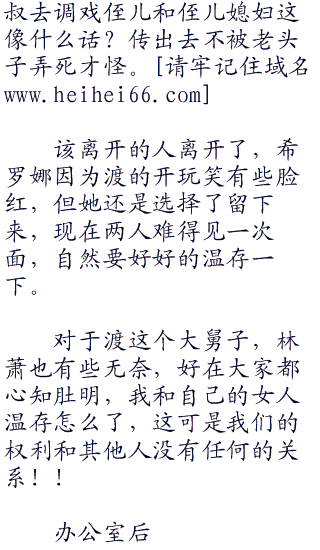 叔去调戏侄儿和侄儿媳妇这
像什么话？传出去不被老头
子弄死才怪。[请牢记住域名
www.heihei66.com]
该离开的人离开了，希
罗娜因为渡的开玩笑有些脸
红，但她还是选择了留下
来，现在两人难得见一次
面，自然要好好的温存一
下。
对于渡这个大舅子，林
萧也有些无奈，好在大家都
心知肚明，我和自己的女人
温存怎么了，这可是我们的
权利和其他人没有任何的关
系！！
办公室后